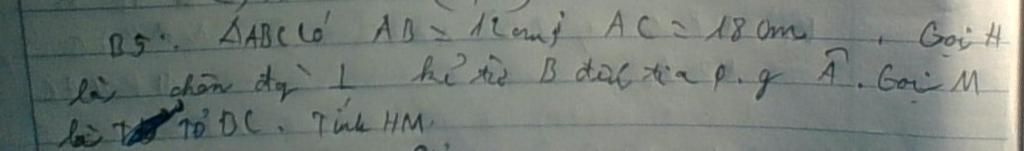 B5: ΔABC có AB = 12cm; AC = 18cm. Gọi H
là chân đg ⊥ kẻ từ B đến tia p.g Â. Gọi M
là TĐ BC. Tính HM.